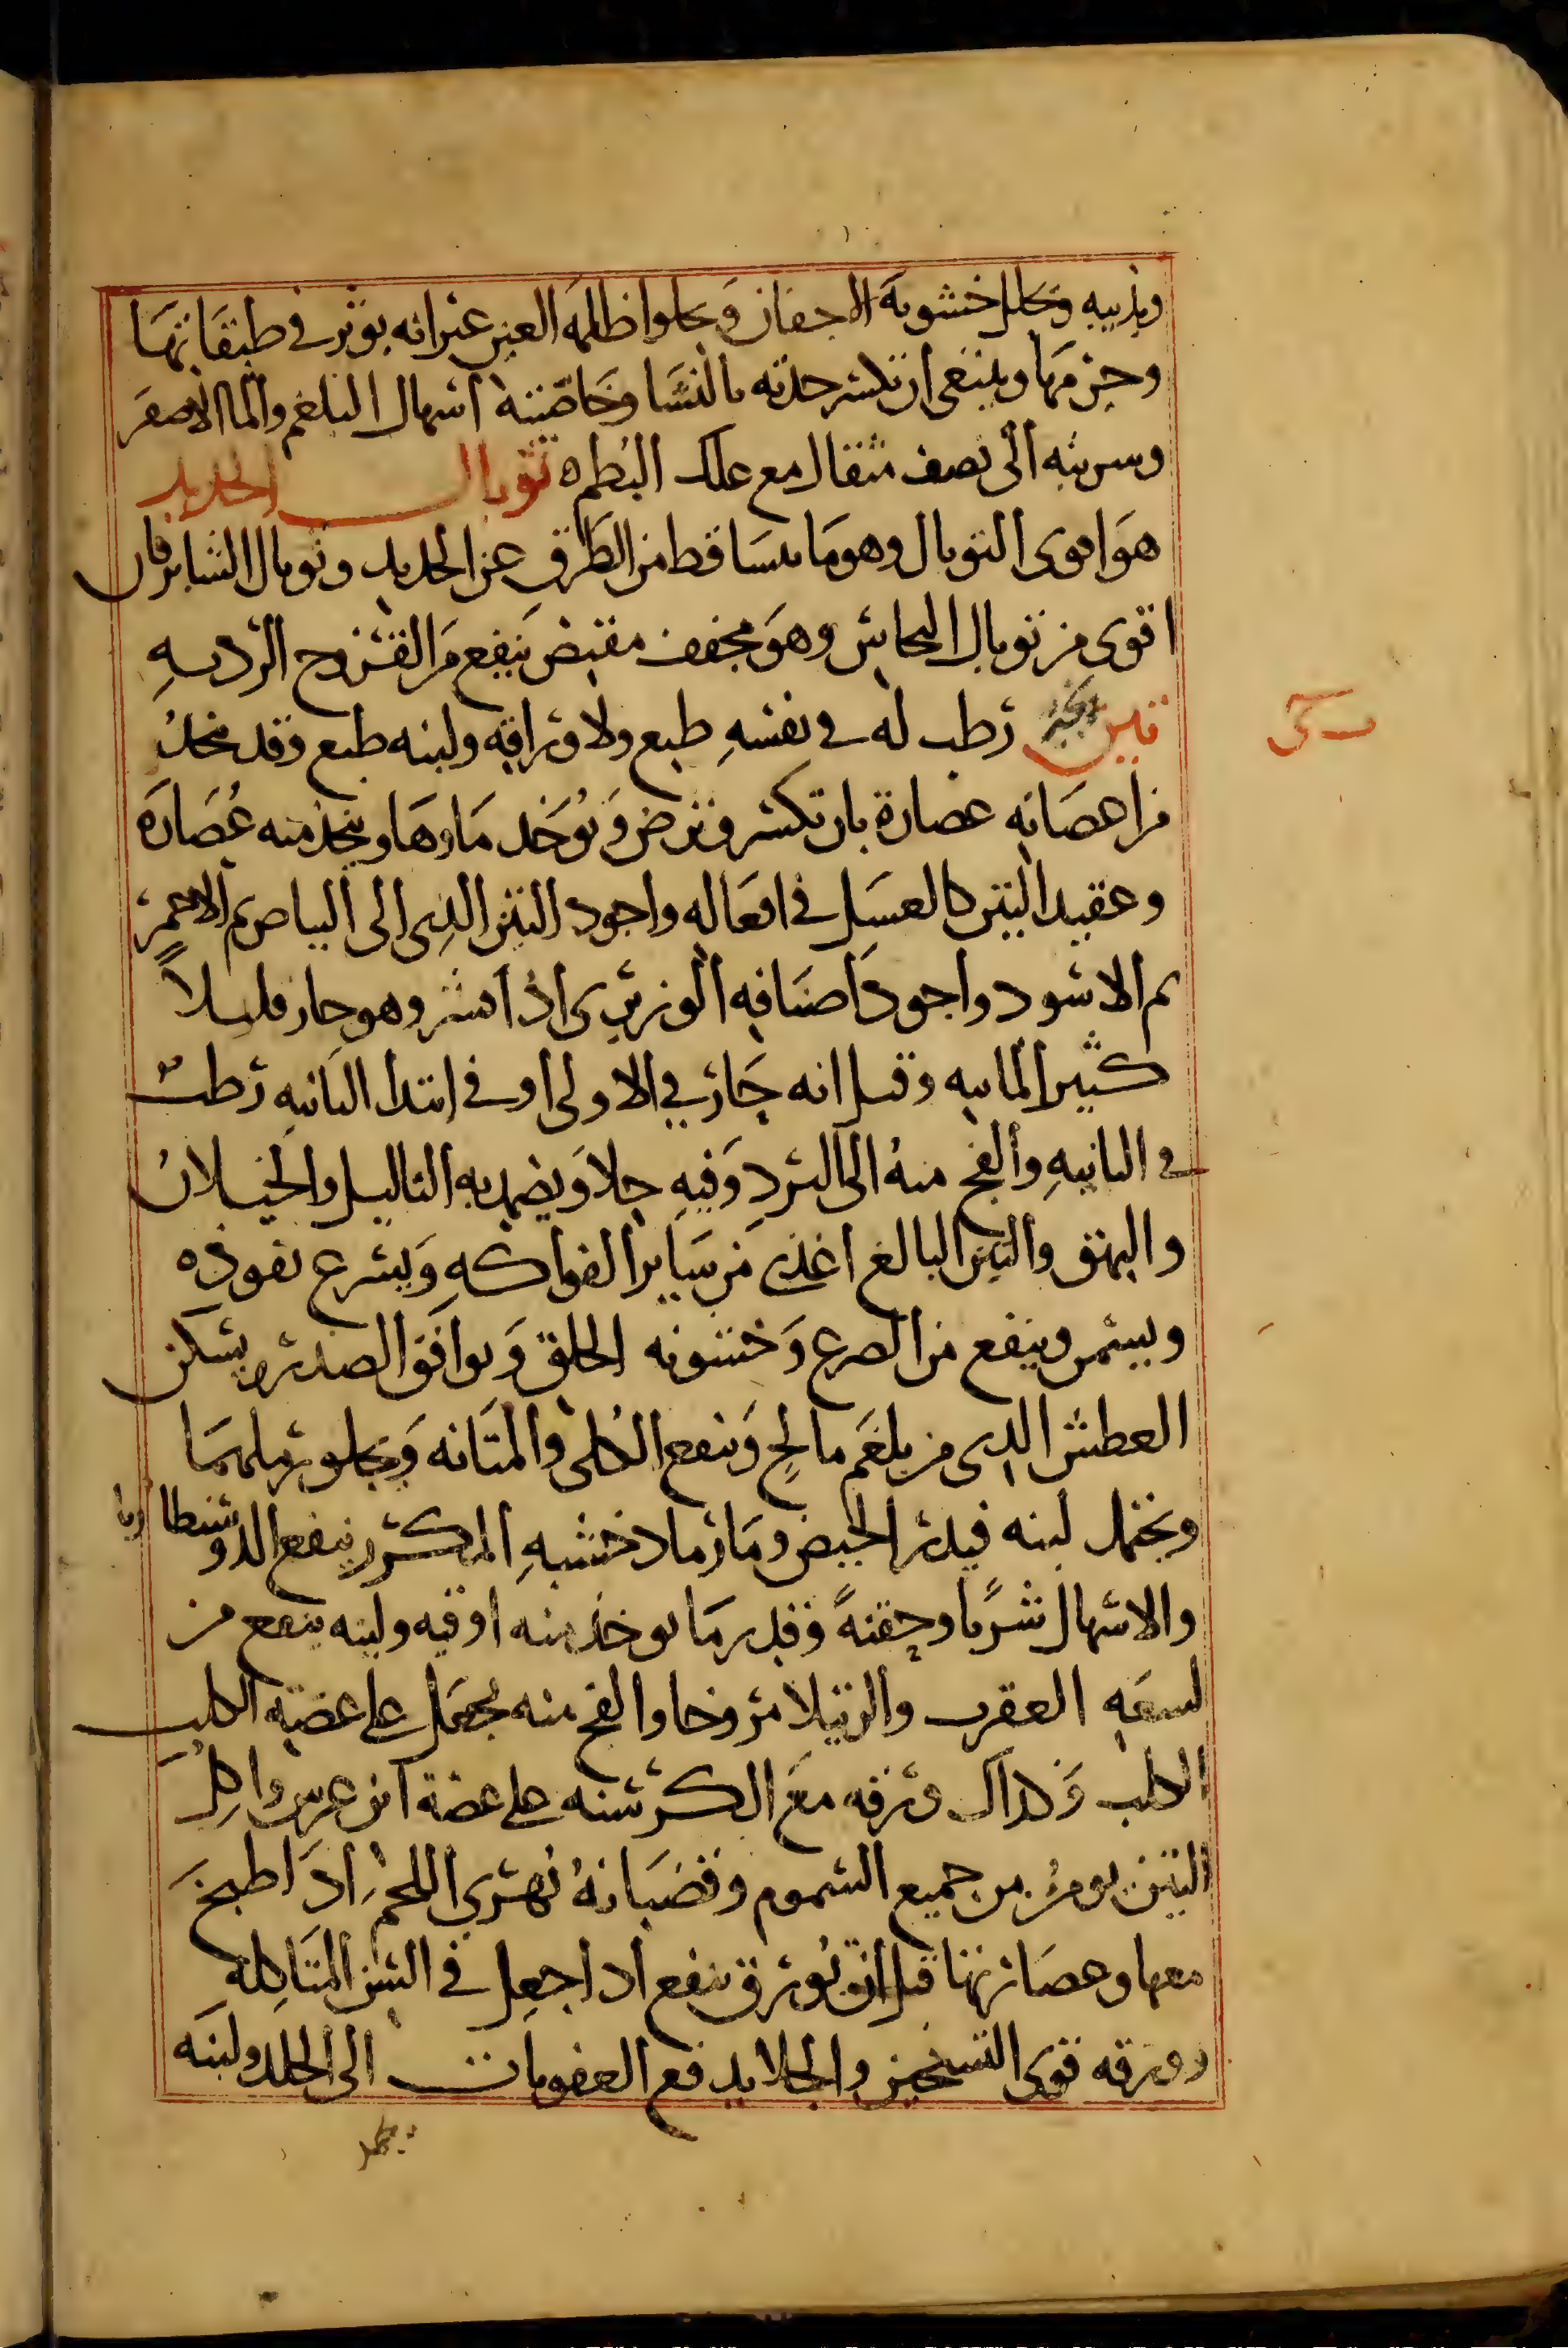 ويذيبه وتحلل خشونة الاجفان ويجلوا ظلمة العين غير انه يوثر في طبقاتها
وحرمها وينبغي ان تكسر حدته بالنشا وخاصيته اسهال البلغم والما الاصفر
وشربته الى نصف مثقال مع علك البطم ه توبال الحديد
هو اقوى التوبال وهو ما يتساقط من الطرق عن الحديد وتوبال الشابرقان
اقوى من توبال النحاس وهو مجفف مقبض ينفع من القروح الرديه
تين رطب له في نفسه طبع ولاوراقه ولبنه طبع وقد تتخذ
من اعصانه عصارة بان تكسر وترض ويوخذ ماوها ويتخذ منه عصاره
وعقيد التين كالعسل في افعاله واجود التين الذي الى البياض ثم الاحمر
ثم الاسود واجود اصنافه الوزيري اذا قشر وهو حار قليلاً
كثير المائيه وقيل انه حار في الاولى او في ابتدا الثانيه رطب
في الثانيه والفج منه الى البرد وفيه جلا ويضمد به الثاليل والخيلان
والبهق والتين البالغ اغذى من ساير الفواكه ويسرع نفوذه
ويسمن وينفع من الصرع وخشونه الحلق ويوافق الصدر ويسكن
العطش الذي من بلغم مالح وينفع الكلى والمثانه ويجلو رملهما
ويحتمل لبنه فيدر الحيض وما رماد خشبه المكرر ينفع الدوسنطاريا
والاسهال شربا وحقنةً وقدر ما يوخذ منه اوقيه ولبنه ينفع من
لسعه العقرب والرتيلا مروخا والفج منه يجعل على عضة الكلب
الكلب وكذلك ورقه مع الكرسنه على عضة ابن عرس واكل
التين يومن من جميع السموم وقضبانه تهري اللحم اذا طبخ
معها وعصارتها قبل ان تورق ينفع اذا جعل في السن المتاكله
وورقه قوي التسخين والجلا يدفع العفونات الى الجلد ولبنه
يجمد